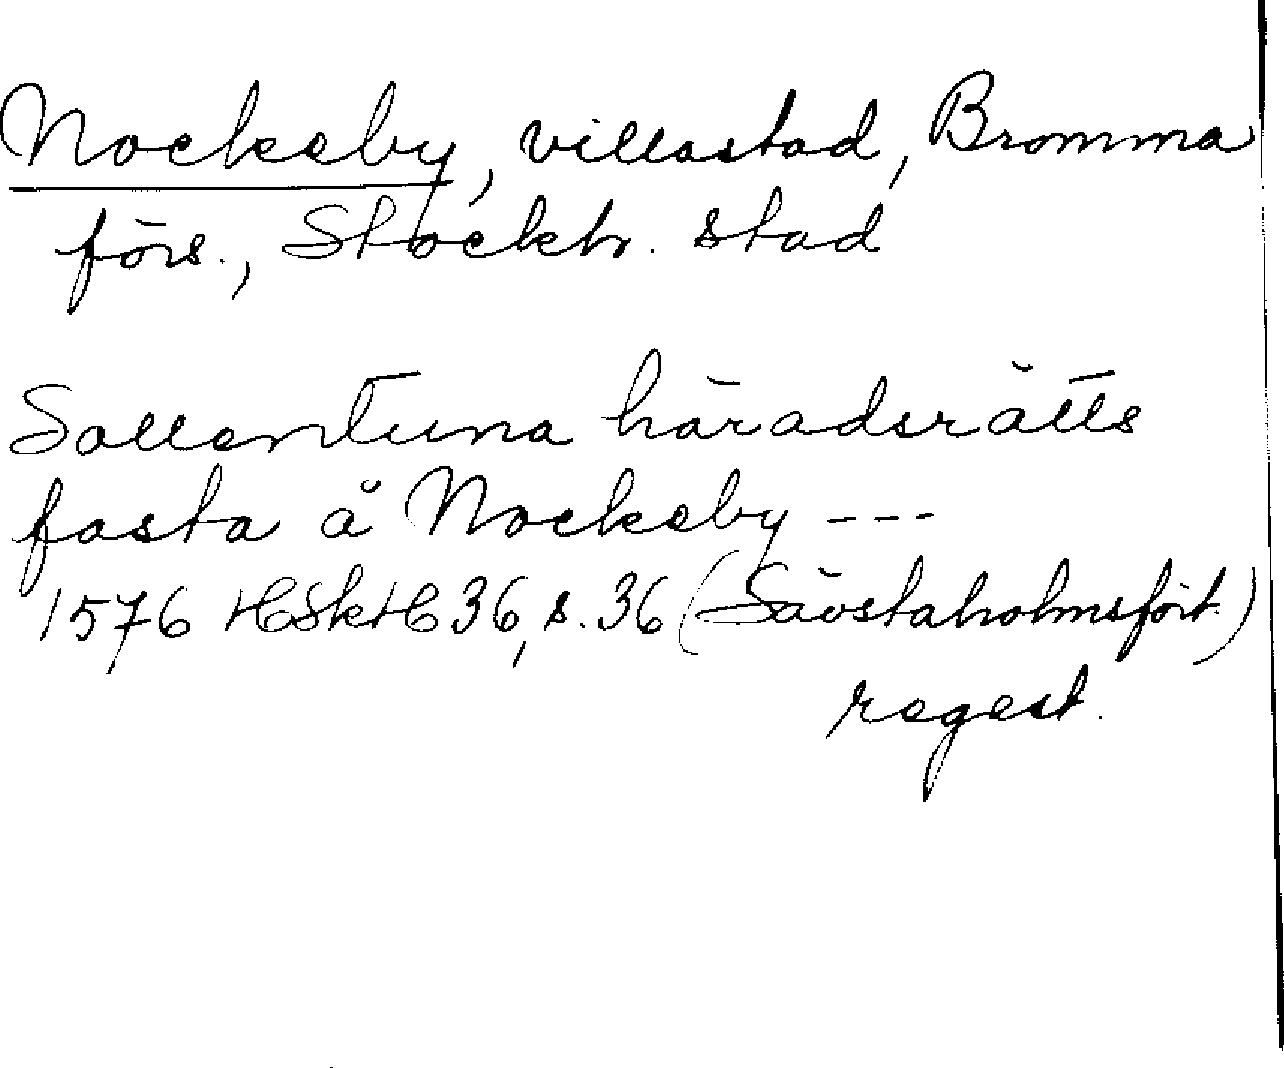 Nockeby, villastad, Bromma
förs., Stockh. stad
Sollentuna häradsrätts
fasta å Nockeby ---
1576 HSkH 36, s. 36 (Sävstaholmsfört.)
regest.